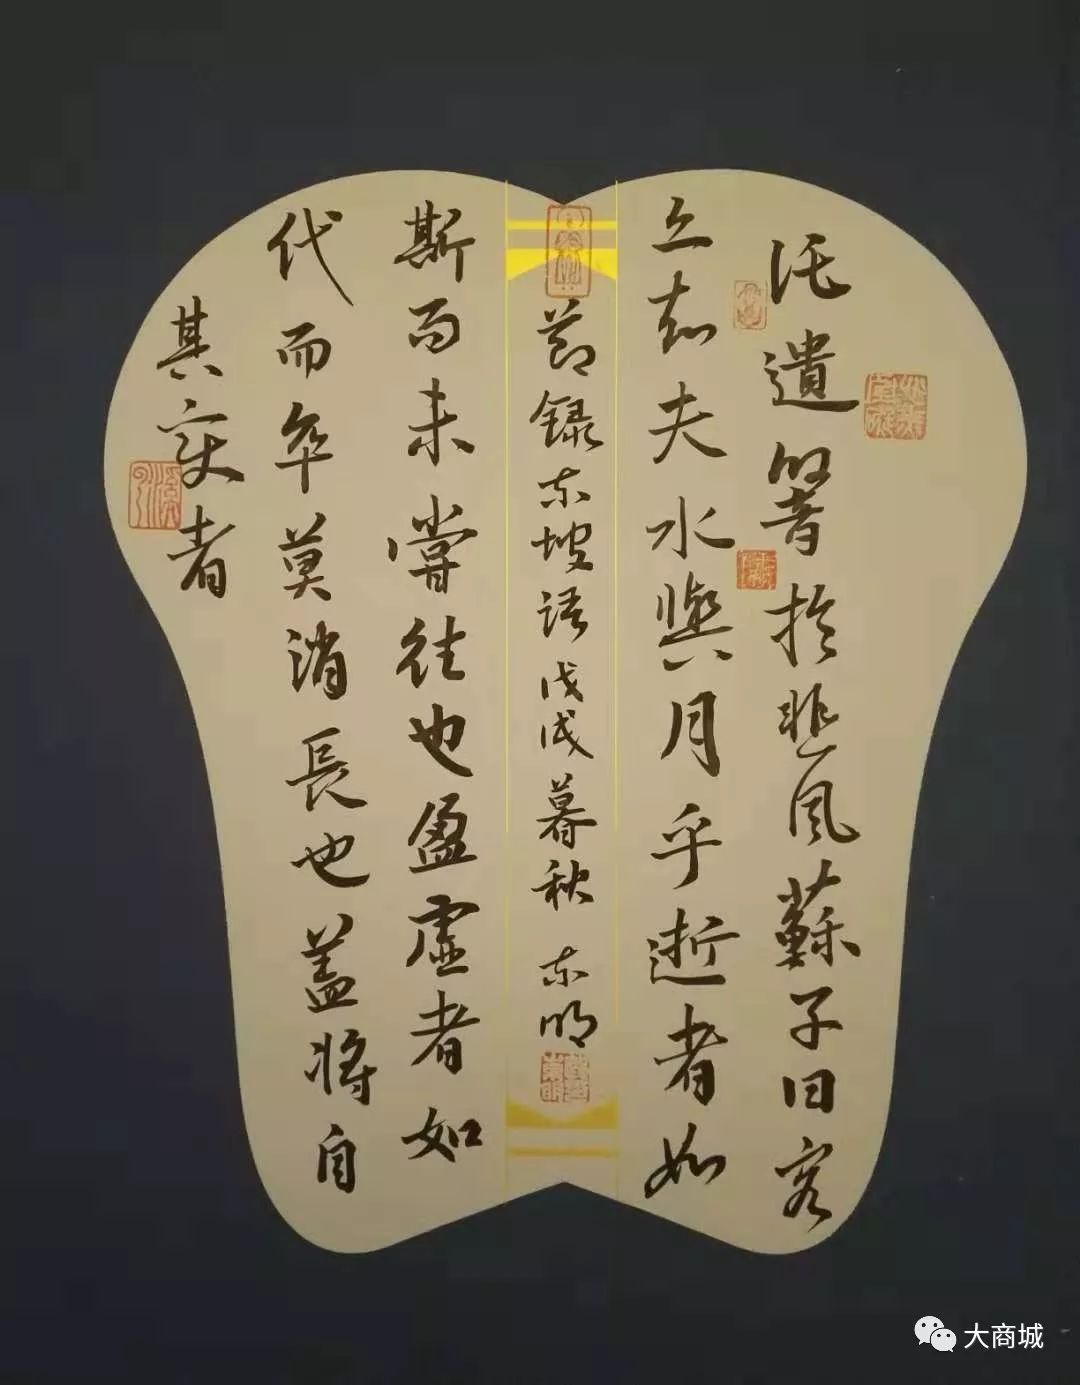 託遺響於悲風蘇子曰客
亦知夫水與月乎逝者如
斯而未嘗往也盈虛者如
代而卒莫消長也蓋將自
其變者
節錄東坡語戊戌暮秋 東明
大商城